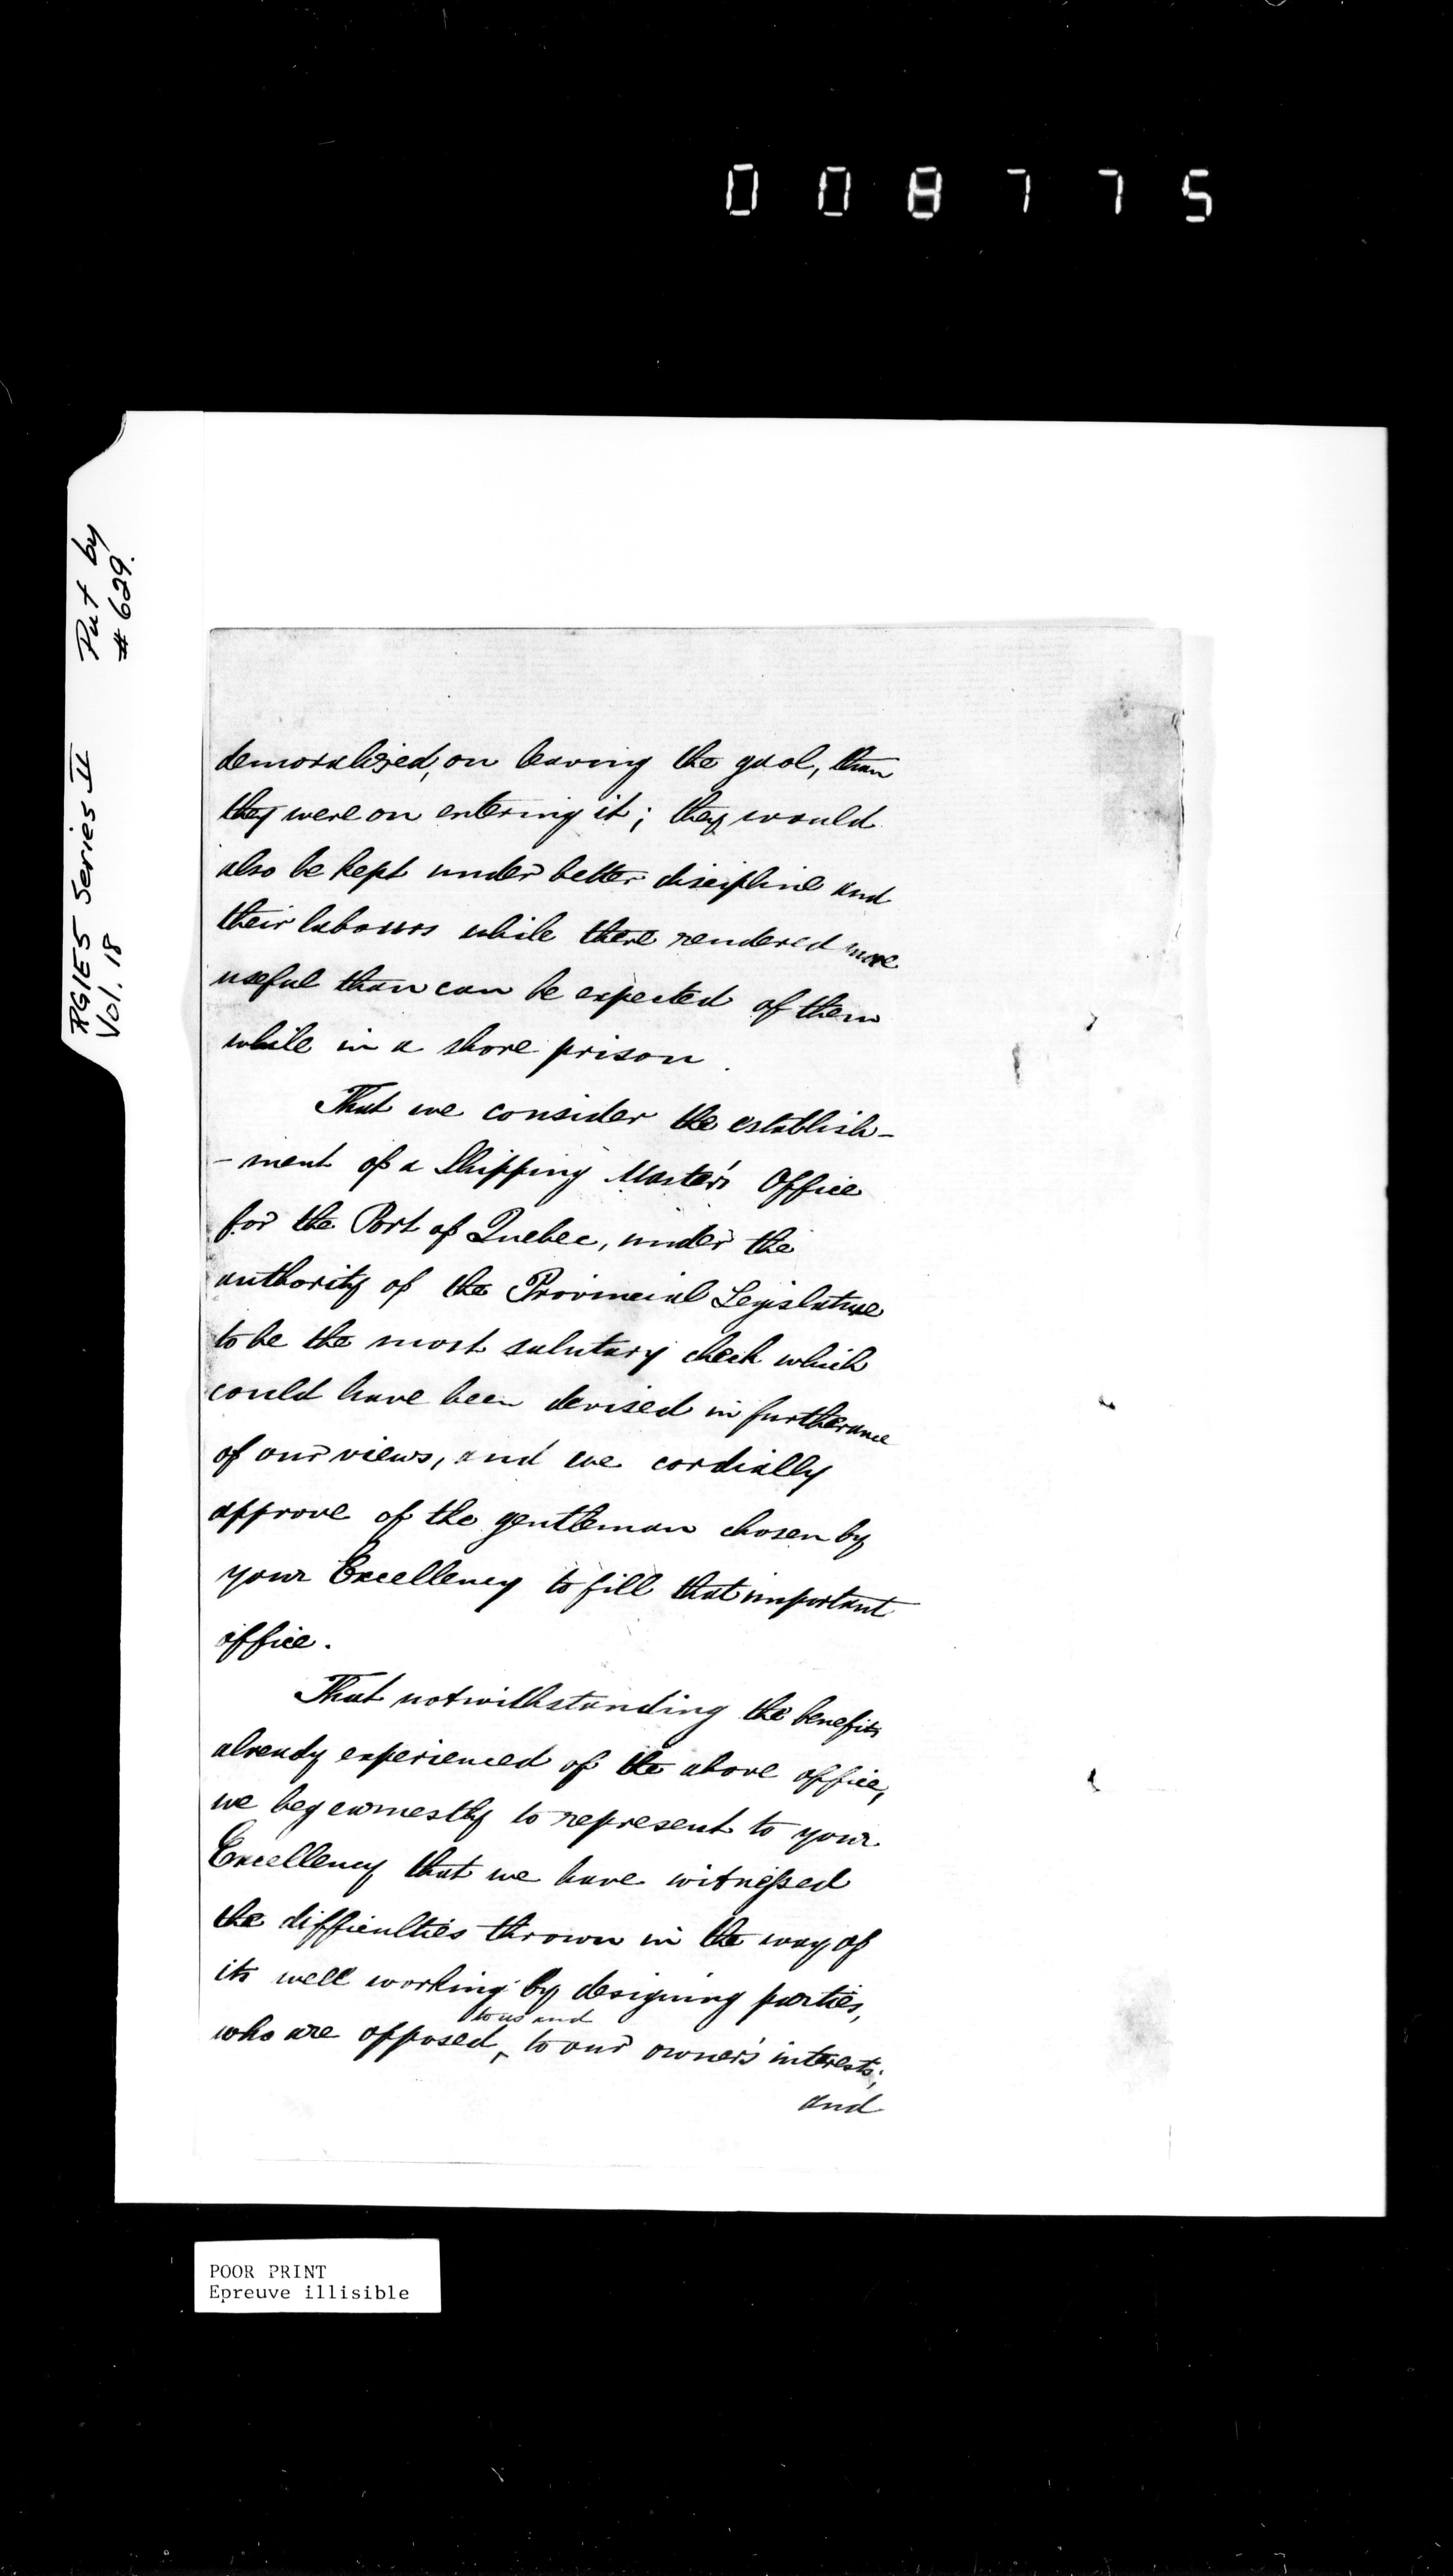 008775
Put by
# 629.
RG1E5 Series II
Vol. 18
demoralised, on leaving the gaol, than
they were on entering it; they would
also be kept under better discipline and
their labours while there rendered more
useful than can be expected of them
while in a shore prison.
That we consider the establish-
-ment of a Shipping Master's Office
for the Port of Quebec, under the
authority of the Provincial Legislature
to be the most salutary check which
could have been devised in furtherance
of our views, and we cordially
approve of the gentleman chosen by
your Excellency to fill that important
office.
That notwithstanding the benefits
already experienced of the above office,
we beg earnestly to represent to your
Excellency that we have witnessed
the difficulties thrown in the way of
its well working by designing parties,
to us and
who are opposed ‸ to our owner's interests;
and
POOR PRINT
Epreuve illisible